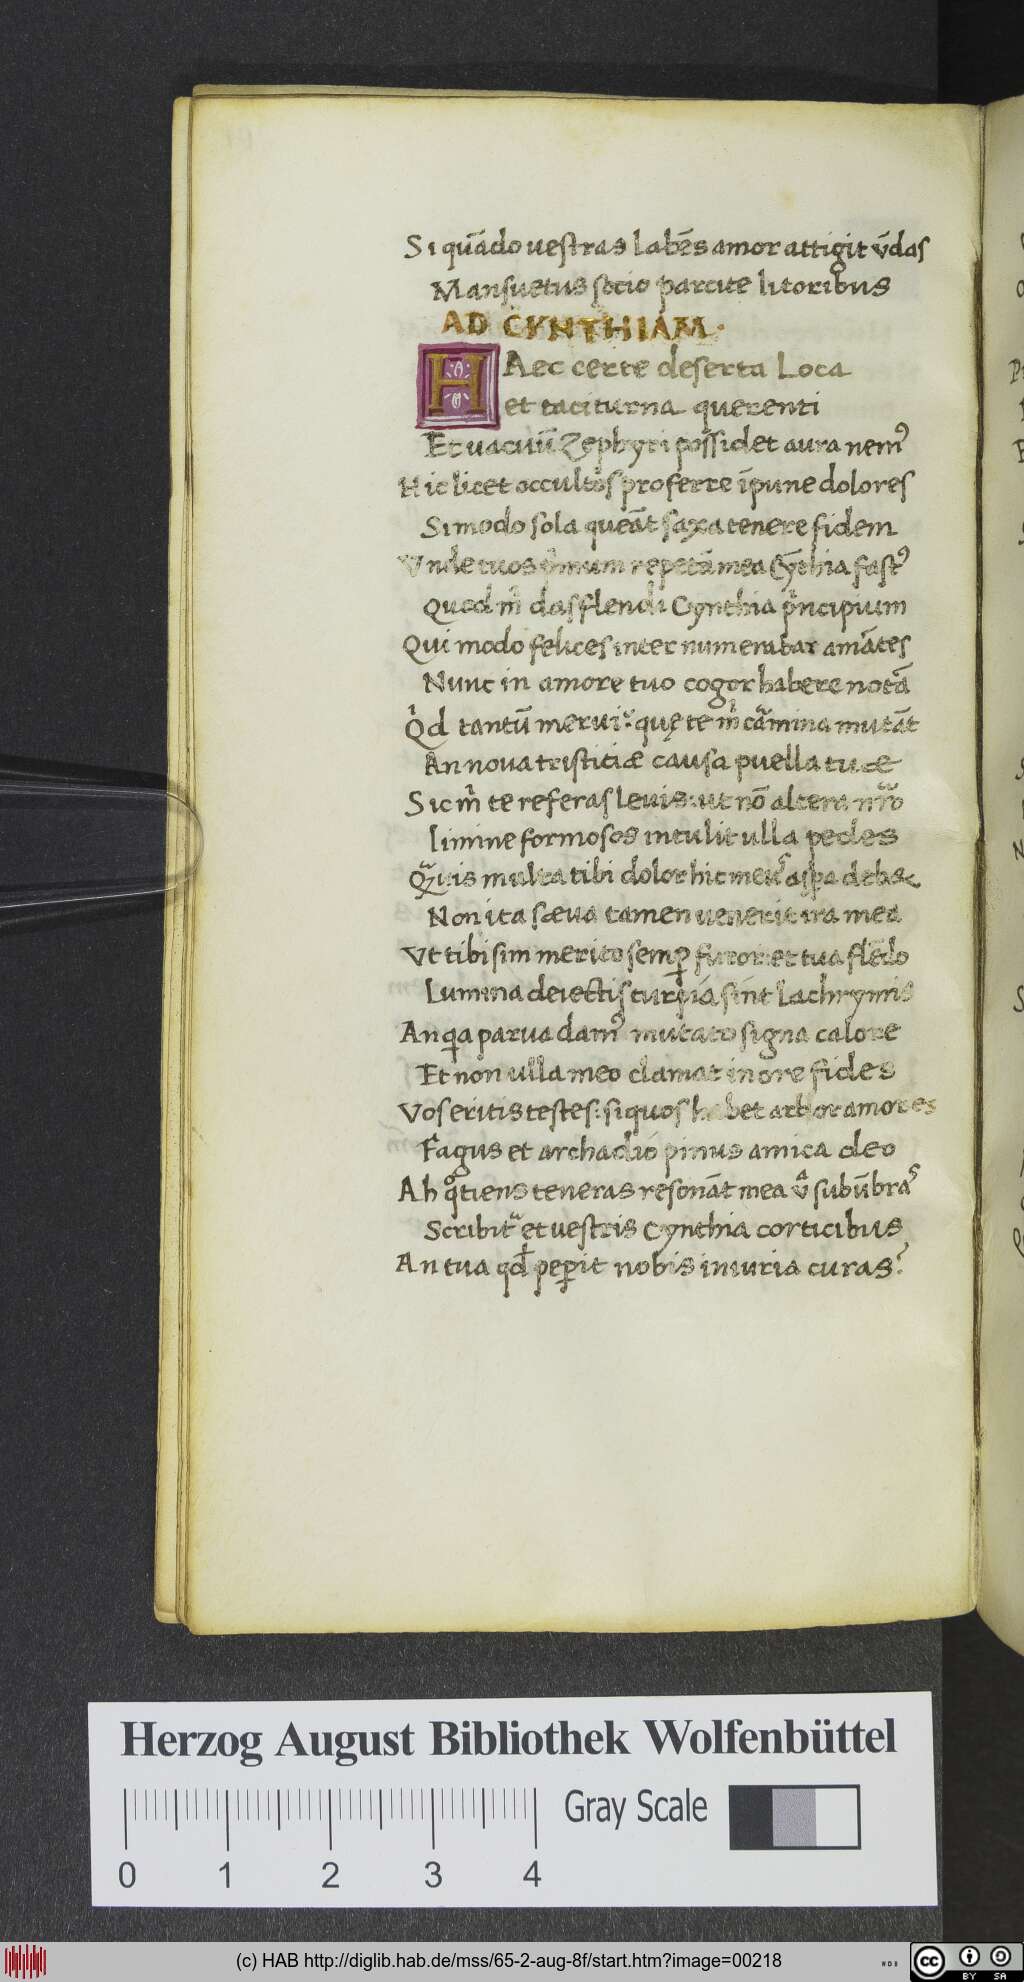 Si quādo uestras labēs amor attigit ūdas
Mansuetus socio parcite litoribus
AD CYNTHIAM.
HAec certe deserta Loca
et taciturna querenti
Et vacuū Zephyri possidet aura nem⁹
Hic licet occultos proferre īpune dolores
Si modo sola queāt saxa tenere fidem
Vnde tuos p̾mum repetā mea Cȳthia fast⁹
Quod m̍ das flendi Cynthia p̍ncipium
Qui modo felices inter numerabar amātes
Nunc in amore tuo cogor habere notā
Q̍d tantū merui: quę te m̍ cͣmina mutāt
An nova tristiciæ causa puella tuæ
Sic m̍ te referas levis: ut nō altera nr̄o
limine formosos intulit ulla pedes
Qͣuis multa tibi dolor hic me⁹ aspa debæ
Non ita sæva tamen venerit ira mea
Vt tibi sim merito semꝑ furor: et tua flēdo
Lumina deiectis turpia sint Lachrymis
An qa parua dam⁹ mutato signa calore
Et non ulla meo clamat in ore fides
Vos eritis testes: si quos habet arbor amores
Fagus et archadio pinus amica deo
Ah qͦtiens teneras resonāt mea v̾ sub ūbras
Scribitͬ et uestris Cynthia corticibus
An tua qđ peꝑit nobis iniuria curas?
Herzog August Bibliothek Wolfenbüttel
Gray Scale
0 1 2 3 4
(c) HAB http://diglib.hab.de/mss/65-2-aug-8f/start.htm?image=00218
cc BY SA